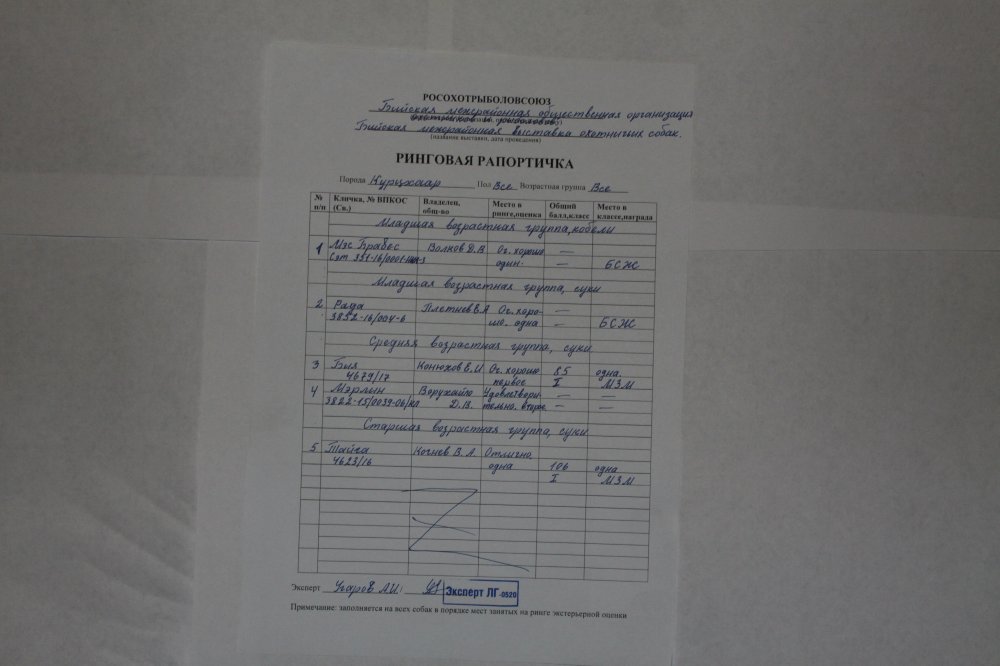 РОСОХОТРЫБОЛОВСОЮЗ
Бийская межрайонная общественная организация
охотников и рыболовов
Бийская межрайонная выставка охотничьих собак.
(название выставки, дата проведения)
РИНГОВАЯ РАПОРТИЧКА
Порода Курцхаар Пол Все Возрастная группа Все
№ п/п Кличка, № ВПКОС (Св.) Владелец, общ-во Место в ринге,оценка Общий балл,класс Место в классе,награда
Младшая возрастная группа, кобели
1 Мэс Брабес Волков Д.В. Оч. хорошо —
один. — БСЖ
Младшая возрастная группа, суки
2 Рада Плетнев Е.А Оч. хоро- —
3852-16/004-6 шо. одна — БСЖ
Средняя возрастная группа, суки
3 Бия Конюхов Е.И Оч. хорошо 85 одна
4679/17 первое I МЗМ
4 Мэрлин Ворухайло Удовлетвори- — —
3822-15/0039-06/кл Д.В. тельно. второе — —
Старшая возрастная группа, суки
5 Тайга Кочнев В.А. Отлично,
4623/16 одна 106 одна
I МЗМ
Эксперт Угаров А.И. Эксперт ЛГ-0520
Примечание: заполняется на всех собак в порядке мест занятых на ринге экстерьерной оценки